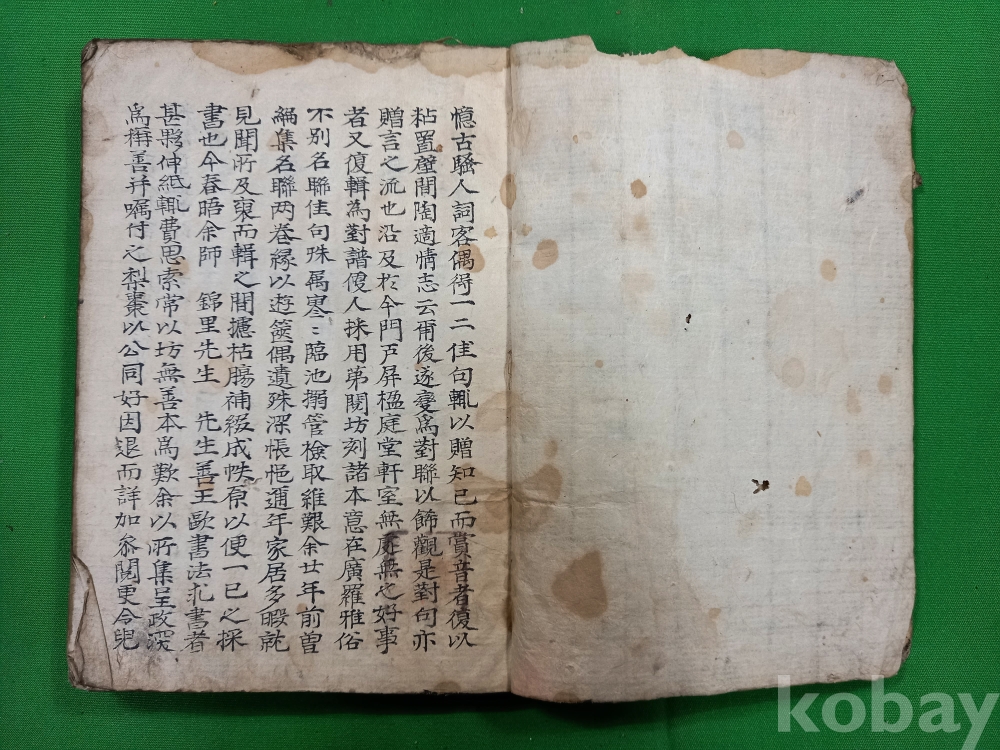 憶古騷人詞客偶得一二佳句輒以贈知己而賞音者復以
粘置壁間陶適情志云爾後遂變爲對聯以飾觀是對句亦
贈言之流也沿及於今門戶屏楹庭堂軒室無處無之好事
者又復輯為對譜俾人採用苐閱坊刻諸本意在廣羅雅俗
不別名聯佳句殊属寥〻臨池搦管檢取維艱余廿年前曽
編集名聯两卷縁以遊篋偶遺殊深悵悒邇年家居多暇就
見聞所及裒而輯之間攄枯腸補綴成帙原以便一己之採
書也今春晤余師 錦里先生 先生善王歐書法求書者
甚夥伸紙輒費思索常以坊無善本爲歎余以所集呈政深
爲稱善并嘱付之梨棗以公同好因退而詳加叅閱更令兒
kobay